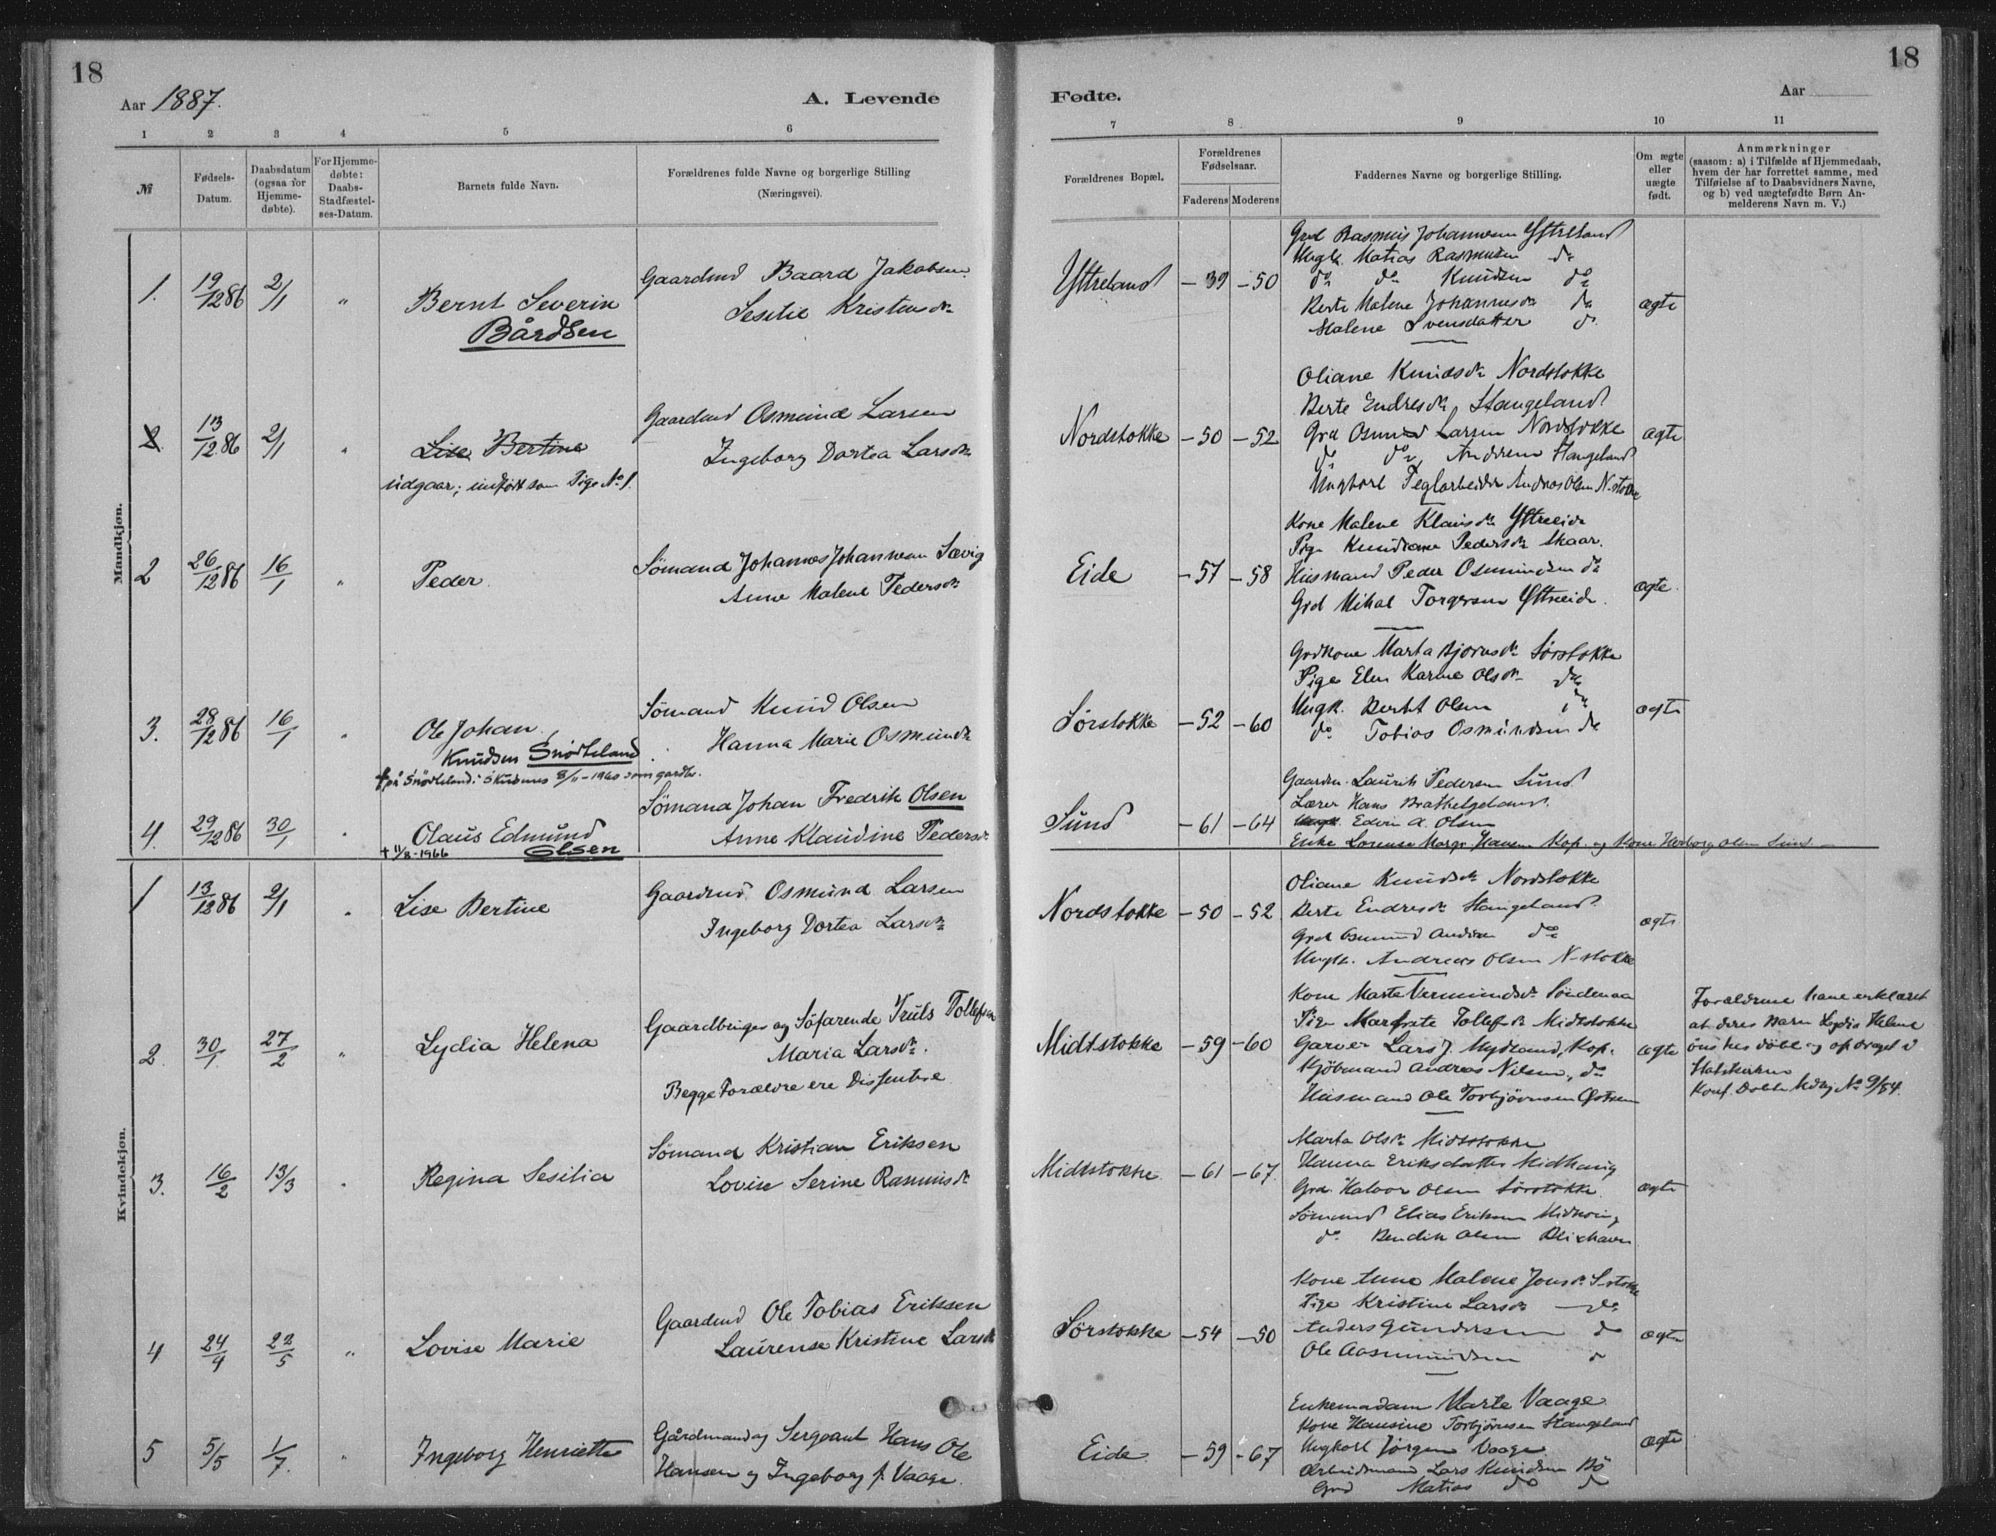 18
18
Aar 1887.
A. Levende
Fødte.
Aar
1
2
3
4
5
6
7
8
9
10
11
№
Fødsels-
Datum.
Daabsdatum
(ogsaa for
Hjemme-
døbte).
For Hjemme-
døbte:
Daabs-
Stadfæstel-
ses-Datum.
Barnets fulde Navn.
Forældrenes fulde Navne og borgerlige Stilling
(Næringsvei).
Forældrenes Bopæl.
Forældrenes
Fødselsaar.
Faderens
Moderens
Faddernes Navne og borgerlige Stilling.
Om ægte
eller
uægte
født.
Anmærkninger
(saasom: a) i Tilfælde af Hjemmedaab,
hvem der har forrettet samme, med
Tilføielse af to Daabsvidners Navne,
og b) ved uægtefødte Børn An-
melderens Navn m. V.)
Mandkjøn.
1. 19/12 86 2/1 " Bernt Severin
Bårdsen
Gaardmd Baard Jakobsen
Sesilie Kristensdr
Ytreland -39 -50
Grd Rasmus Johannesen Ytreland
Ungk. Matias Rasmusen do
do do Knudsen do
Berte Malene Johannesdr do
Malene Svensdatter do
ægte
2 13/12 86 2/1 " Lise Bertine
udgaar; indført som Pige No 1.
Gaardmd Osmund Larsen
Ingeborg Dortea Larsdr
Nordstokke -50 -52
Oliane Knudsdr Nordstokke
Berte Endresdr Stangeland
Grd Osmund Larsen Nordstokke
do do Andersen Stangeland
Ungkarl Teglarbeider Andreas Olsen N-stokke
ægte
2 26/12 86 16/1 " Peder
Sømand Johannes Johannesen Sævig
Anne Malene Pedersdr
Eide -57 -58
Kone Malene Klausdr Ytreeide
Pige Knudiane Pedersdr Skaar.
Husmand Peder Osmundsen do
Grd Mikal Torgersen Ytreeide.
ægte.
3. 28/12 86 16/1 " Ole Johan
Knudsen Snørteland
† på Snørteland i Skudenes 8/11-1960 som gardbr.
Sømand Knud Olsen
Hanna Marie Osmundsdr
Sørstokke -52 -60
Grdkone Marta Bjørnsdr Sørstokke
Pige Elen Karine Olsdr do
Ungk. Berthl Olsen do
do Tobias Osmundsen do
ægte
4. 29/12 86 30/1 " Olaus Edmund
† 11/8-1966 Olsen
Sømand Johan Fredrik Olsen
Anne Klaudine Pedersdr
Sund -61 -64
Gaardm. Laurits Pedersen Sund
Lærer Hans Brathelgeland
Ungk. Edvin A. Olsen
Enke Lorense Margr. Hansen Kop. og Kone Herborg Olsen Sund
Kvindekjøn.
1 13/12 86 2/1 " Lise Bertine
Gaardmd Osmund Larsen
Ingeborg Dortea Larsdr
Nordstokke -50 -52
Oliane Knudsdr Nordstokke
Berte Endresdr Stangeland
Grd Osmund Andersen do
Ungk. Andreas Olsen N-stokke
ægte
2. 30/1 27/2 " Lydia Helena
Gaardbruger og Søfarende Truls Tollefsen
Maria Larsdr.
Begge Forældre ere Dissentere
Midtstokke -59 -60
Kone Marte Vermundsdr Søndenaa
Pige Margrete Tollefsdr Midtstokke
Garver Lars J. Mydland, Kop.
Kjøbmand Andreas Nilsen, do
Husmand Ole Torbjørnsen Østrem
ægte
Forældrene have erklæret
at deres Barn Lydia Helene
ønskes døbt og opdraget i
Statskirken
Konf. Dobb. Udg. No 9/84.
3. 16/2 13/3 " Regina Sesilia
Sømand Kristian Eriksen
Lovise Serine Rasmusdr
Midtstokke -61 -67.
Marta Olsdr Midtstokke
Hanna Eriksdatter Midhaug
Grd. Halvor Olsen Sørstokke.
Sømand Elias Eriksen
do. Bendik Olsen
ægte
4 24/4 22/5 " Lovise Marie
Gaardmd Ole Tobias Eriksen
Laurense Kristine Larsdr
Sørstokke -54 -50
Kone Anne Malene Jonsdr S-stokke
Pige Kristine Larsdr do
Anders Gundersen do
Ole Aasmundsen do
ægte
5 5/5 1/7. " Ingeborg Henriette
Gårdmand og Sergeant Hans Ole
Hansen og Ingeborg f. Vaage.
Eide -59 -67
Enkemadam Marte Vaage
Kone Hansine Torbjørnsen Stangeland
Ungkarl Jørgen Vaage
Arbeidsmand Lars Knudsen Bø
Grd Matias do do
ægte